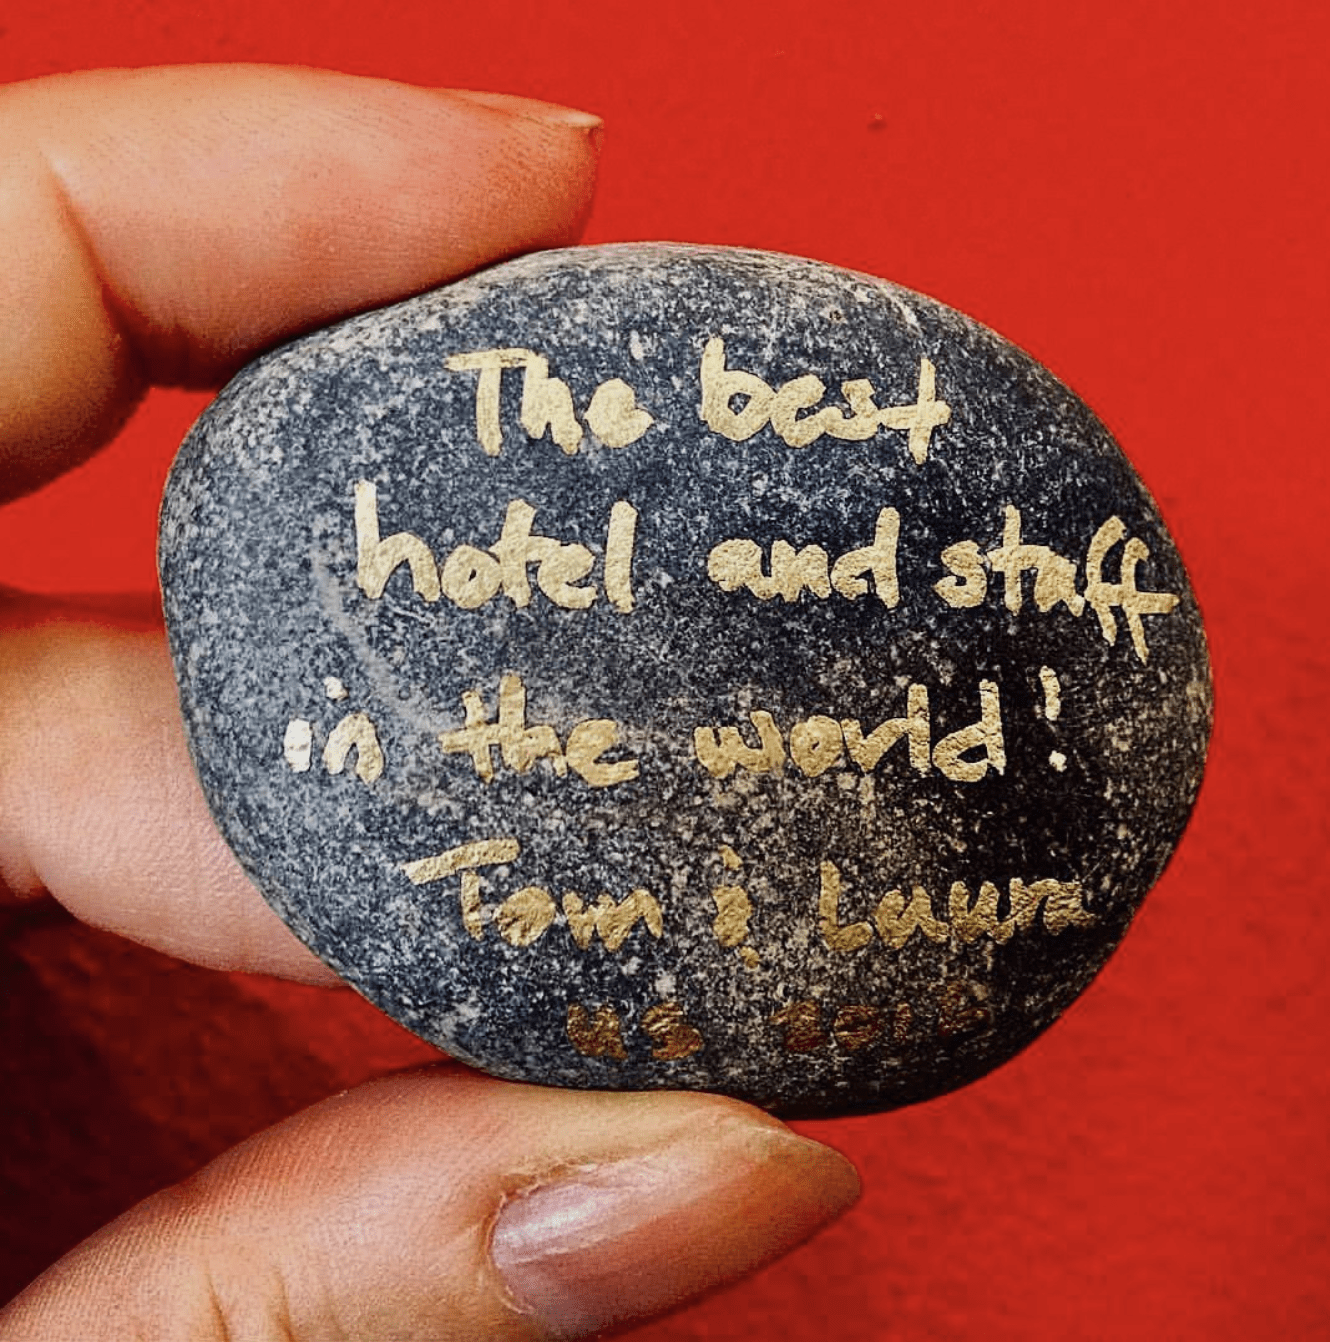 The best
hotel and staff
in the world!
Tom & Laura